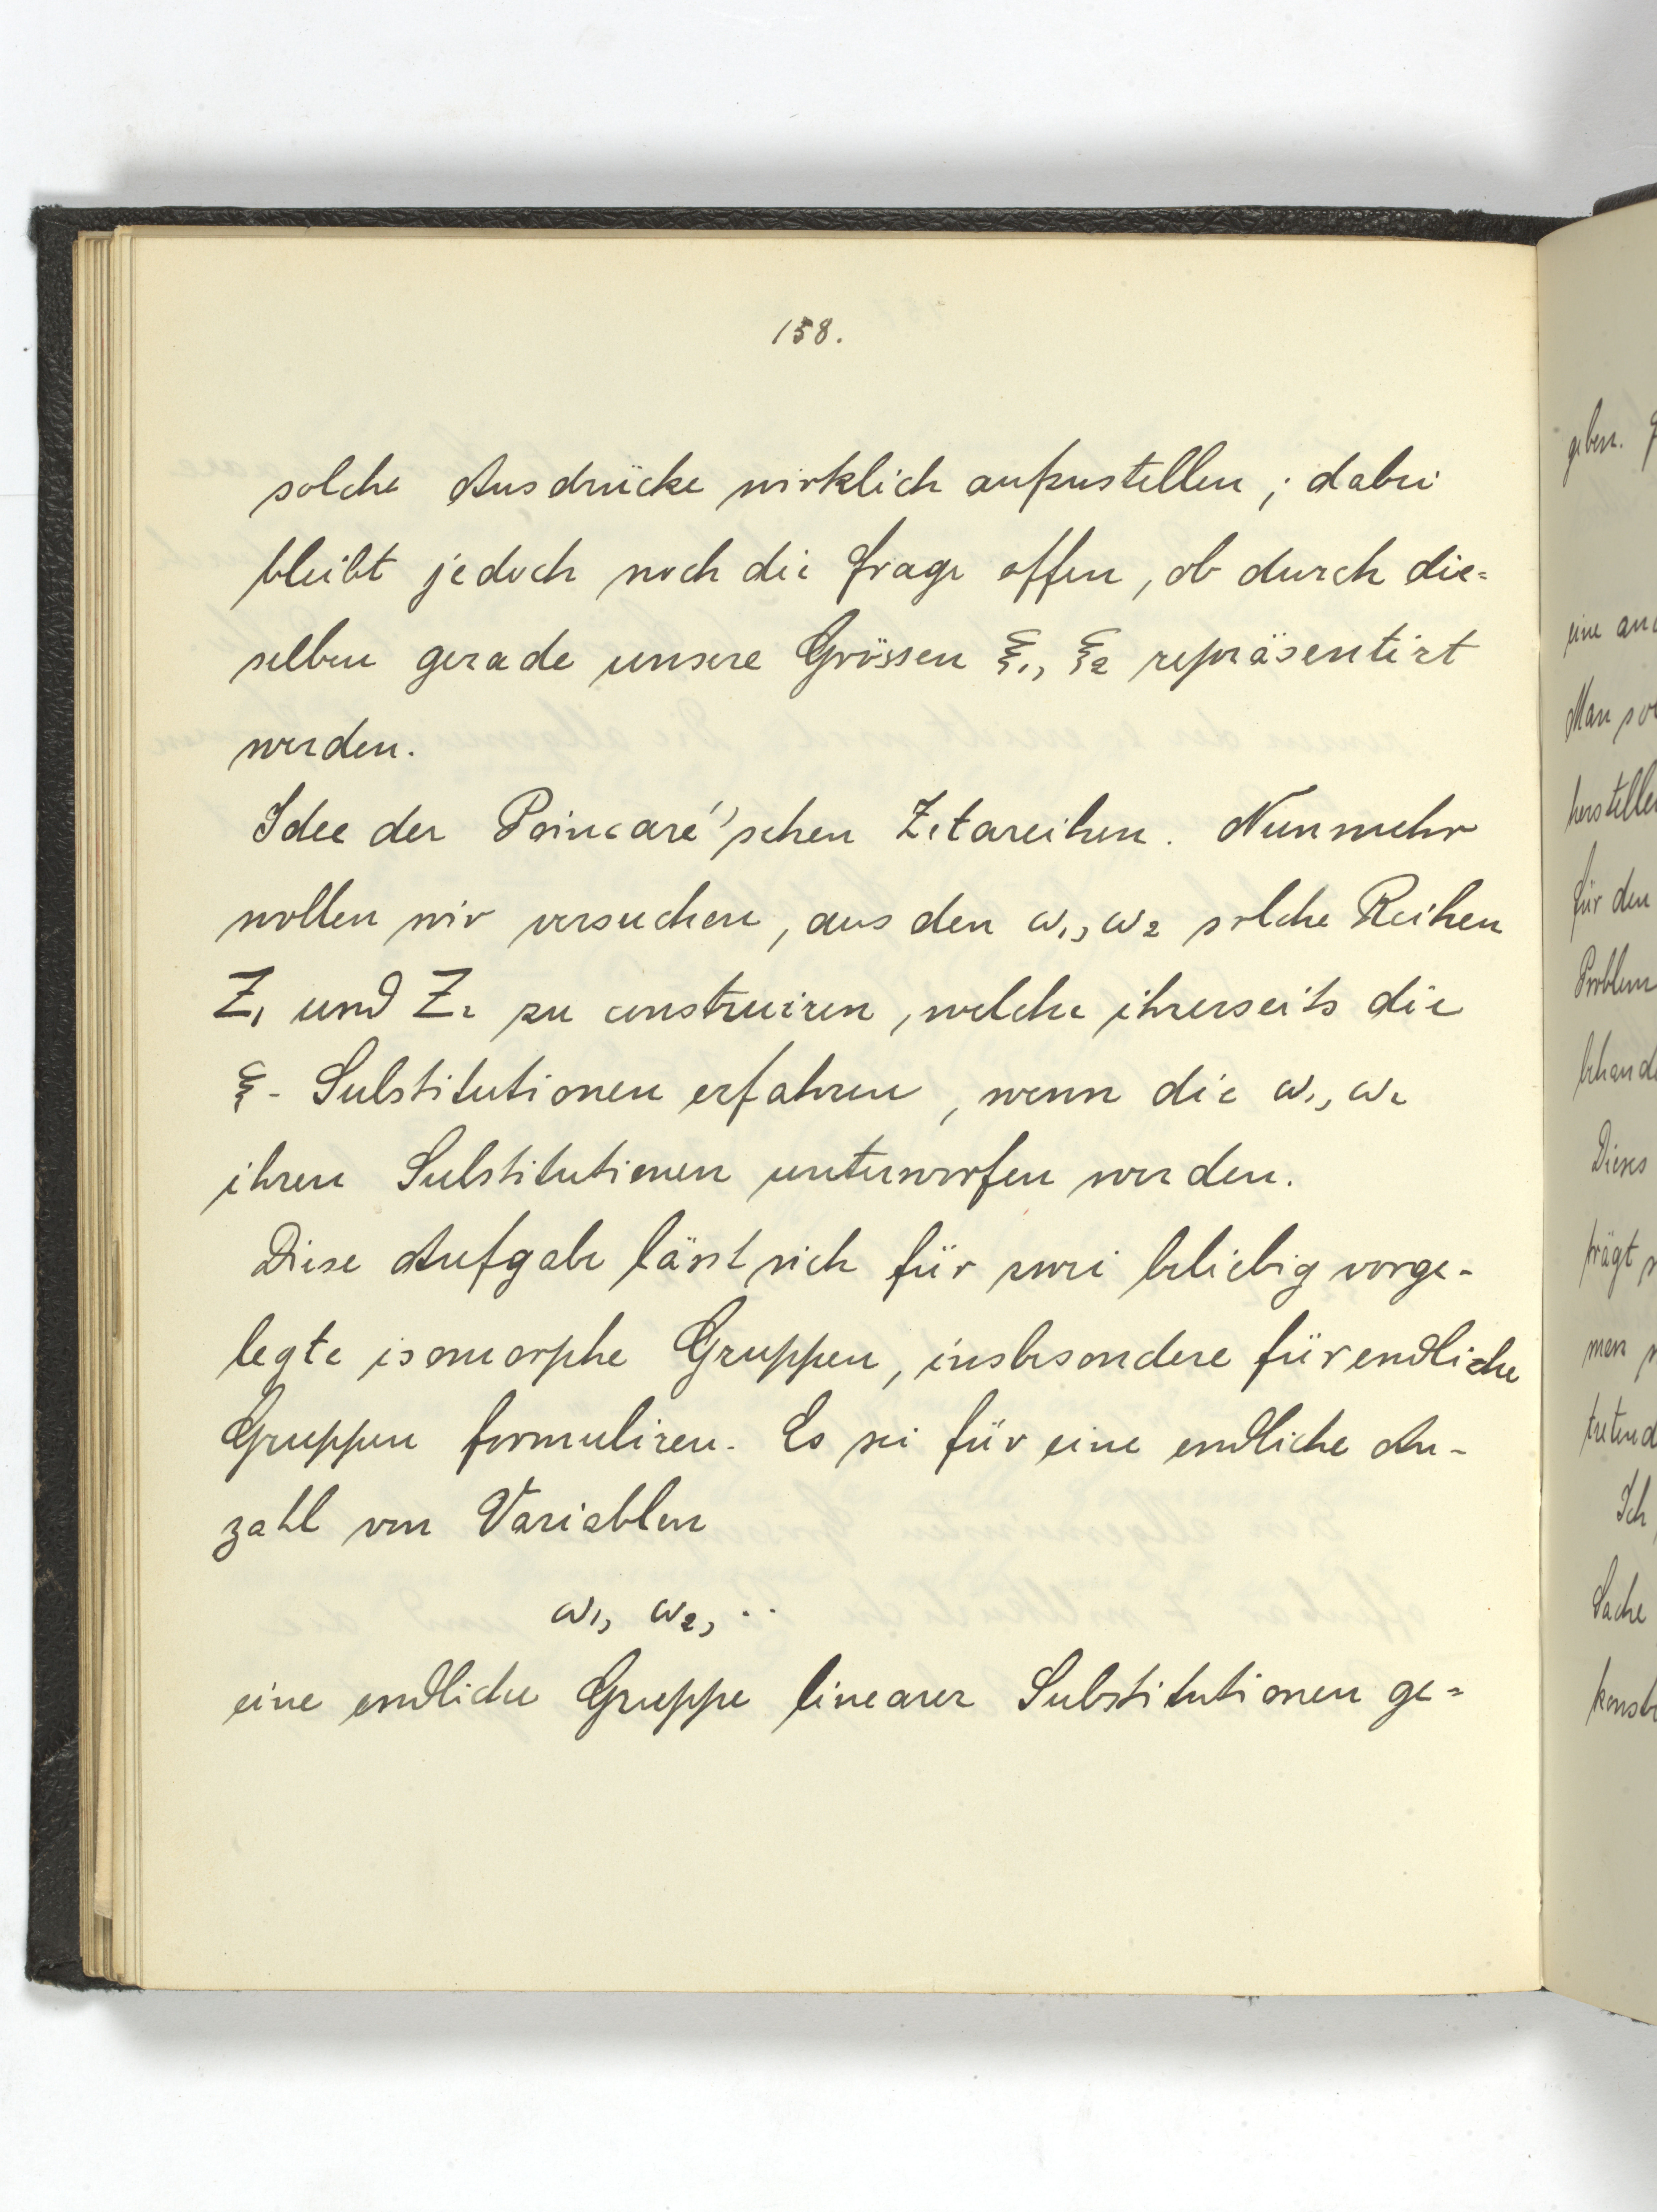 158.
solche Ausdrücke wirklich aufzustellen; dabei
bleibt jedoch noch die Frage offen, ob durch die=
selben gerade unsere Grössen ξ₁, ξ₂ repräsentirt
werden.
Idee der Poincaré'schen Zetareihen. Nunmehr
wollen wir versuchen, aus den ω₁, ω₂ solche Reihen
Z₁ und Z₂ zu construiren, welche ihrerseits die
ξ- Substitutionen erfahren, wenn die ω₁, ω₂
ihren Substitutionen unterworfen werden.
Diese Aufgabe lässt sich für zwei beliebig vorge-
legte isomorphe Gruppen, insbesondere für endliche
Gruppen formuliren. Es sei für eine endliche An-
zahl von Variablen
ω₁, ω₂, ..
eine endliche Gruppe linearer Substitutionen ge=
geben.
eine
Man
herstelle
für den
Problem
behande
Dieses
prägt
men
tretend
Ich
Sache